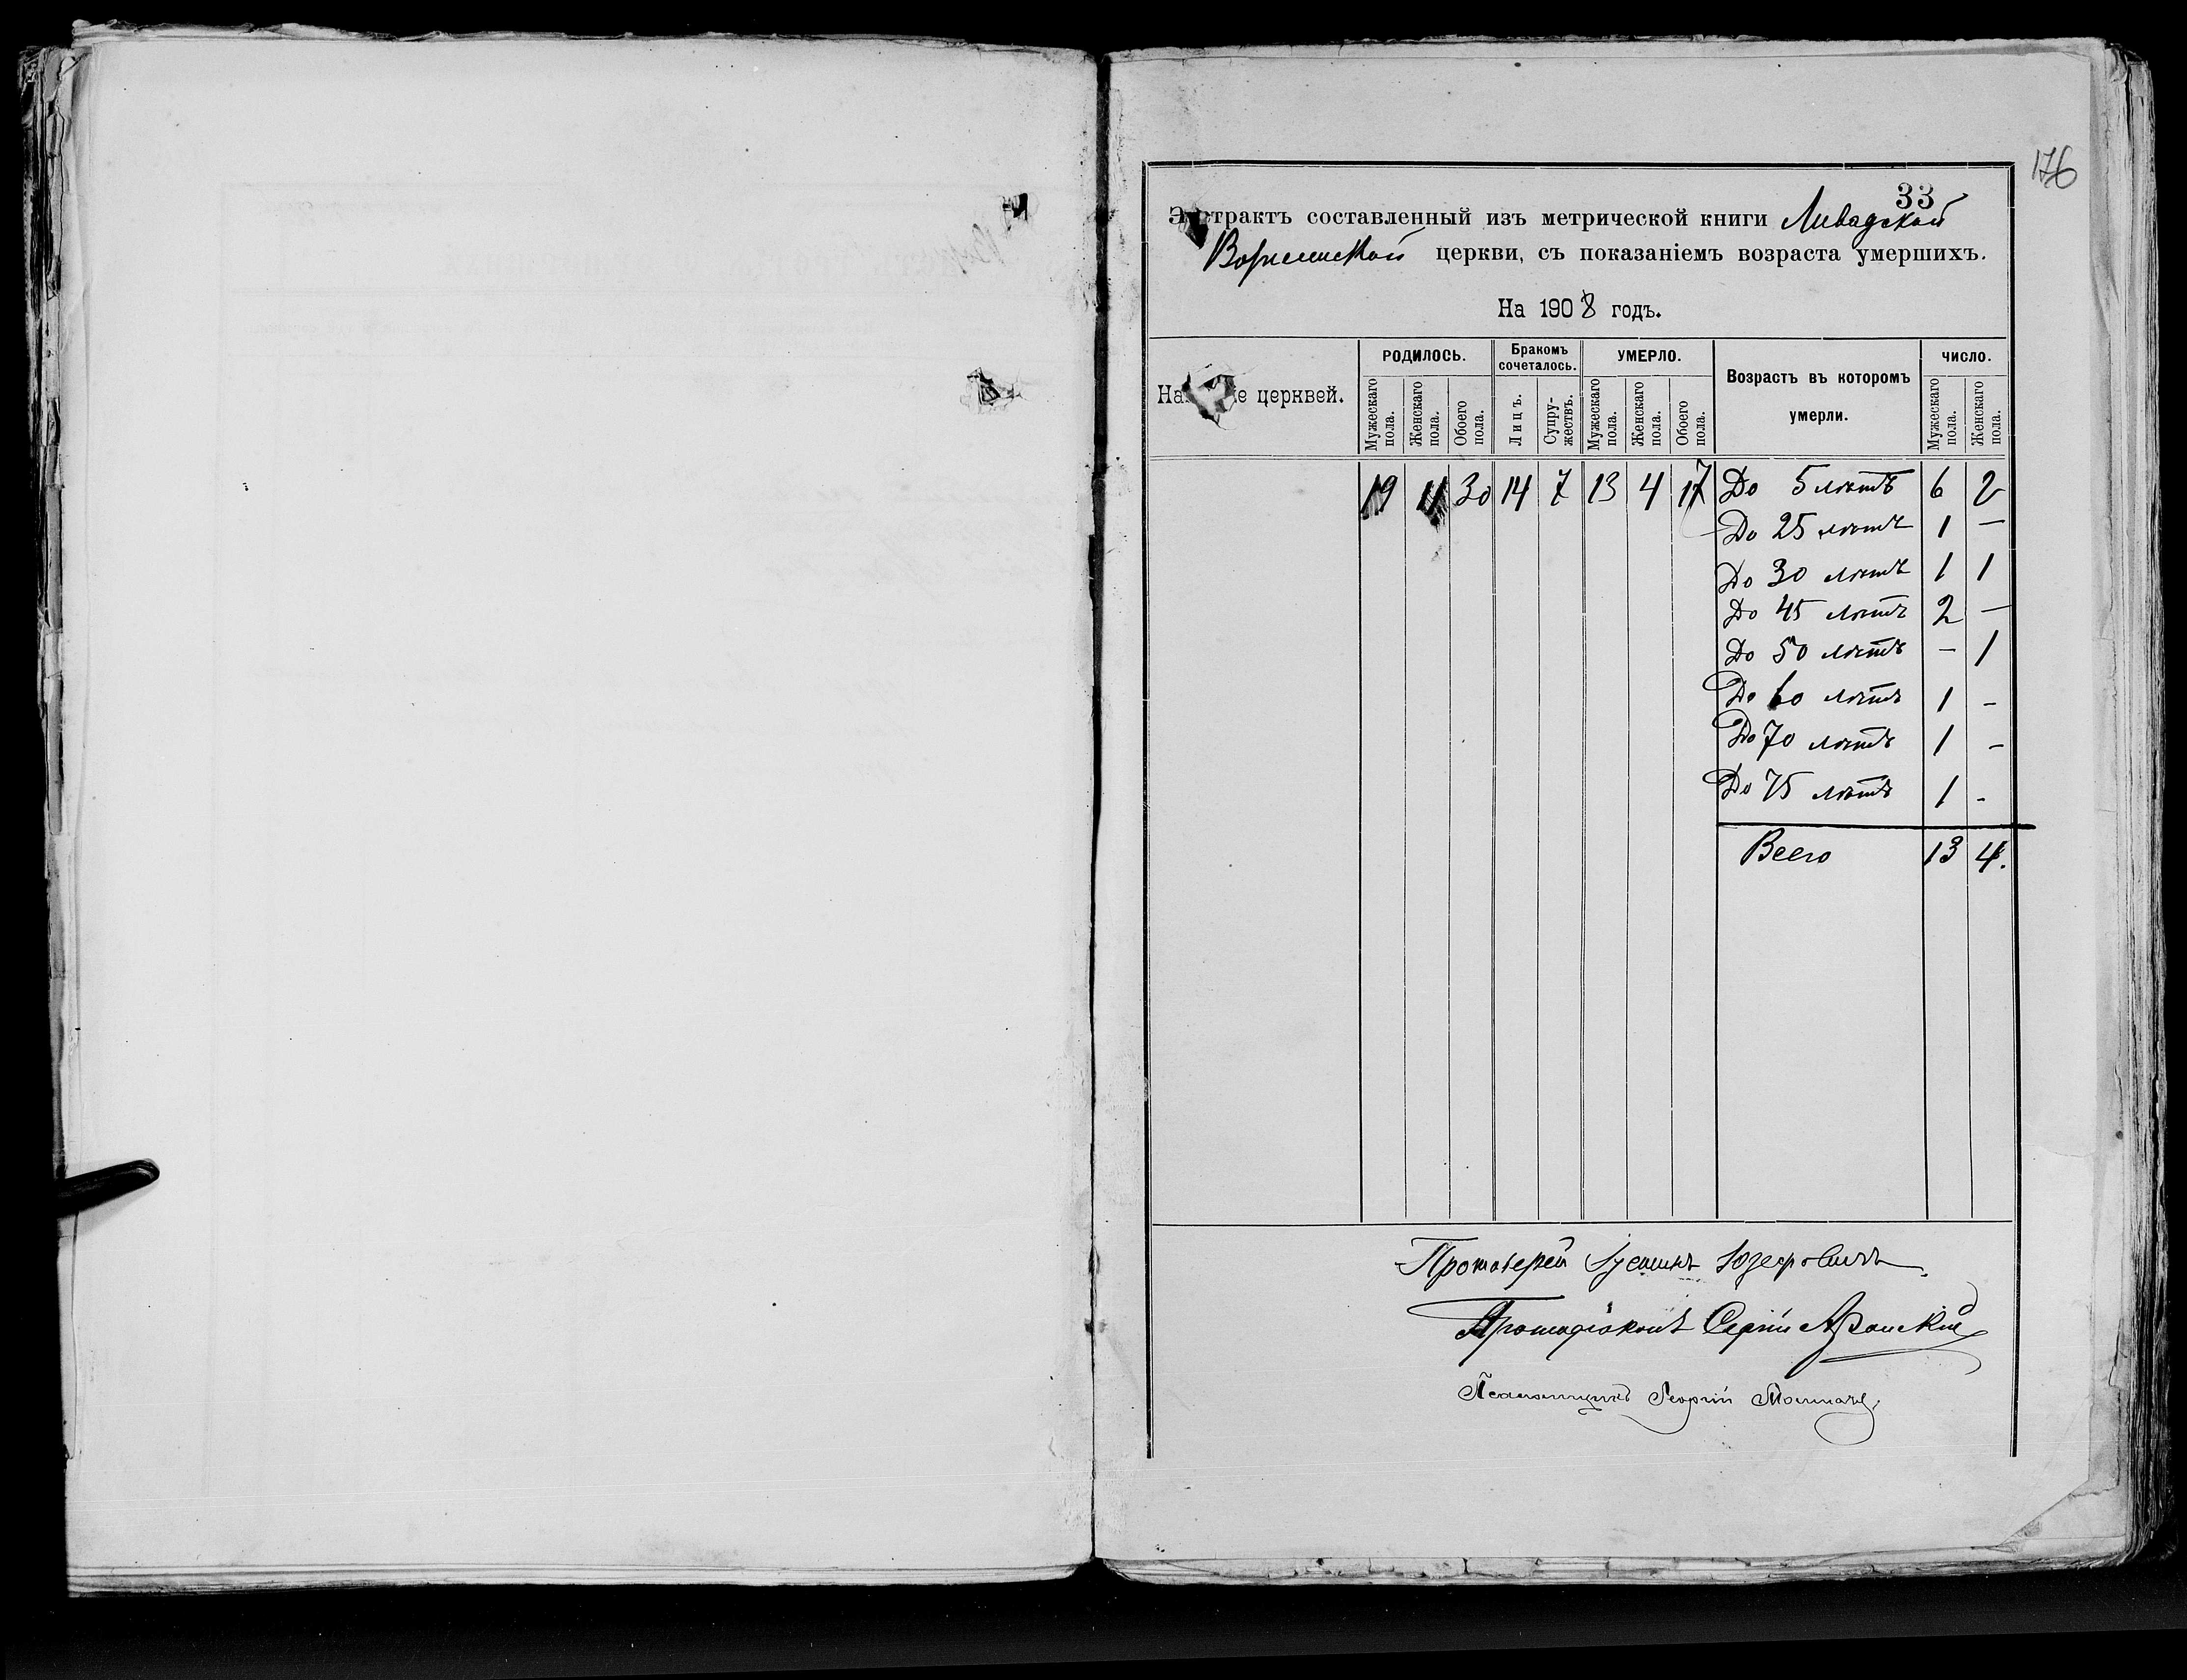 176
33
Экстрактъ составленный изъ метрической книги Ливадской
церкви, съ показаніемъ возраста умершихъ.
На 1908 годъ.
церквей.
РОДИЛОСЬ.
Мужескаго пола.
Женскаго пола.
Обоего пола.
Бракомъ сочеталось.
Лицъ.
Супружествъ.
УМЕРЛО.
Мужескаго пола.
Женскаго пола.
Обоего пола.
Возрастъ въ которомъ умерли.
ЧИСЛО.
Мужескаго пола.
Женскаго пола.
19 11 30 14 7 13 4 17 До 5 лѣтъ 6 2
До 25 лѣтъ 1 —
До 30 лѣтъ 1 1
До 45 лѣтъ 2 —
До 50 лѣтъ — 1
До 60 лѣтъ 1 -
До 70 лѣтъ 1 -
До 75 лѣтъ 1 -
Всего 13 4.
Протоіерей Юзефовичъ
Протодіаконъ Сергій
Псаломщикъ Георгій